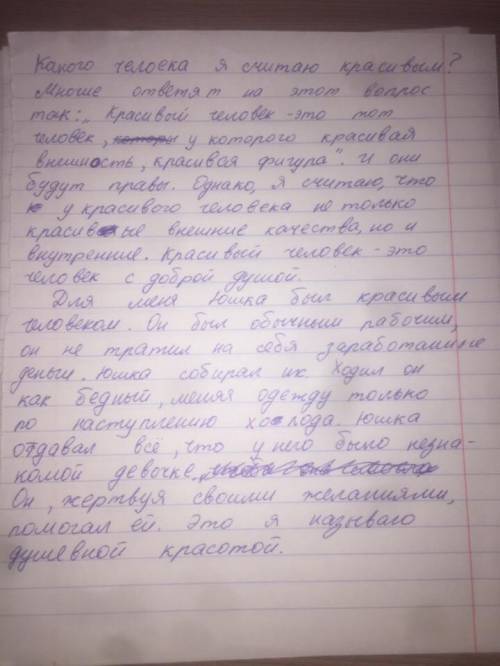 Какого челоека я считаю красивым?
Многие ответят на этот вопрос
так: „Красивый человек - это тот
человек, у которого красивая
внешность, красивая фигура". И они
будут правы. Однако, я считаю, что
у красивого человека не только
красивые внешние качества, но и
внутренние. Красивый человек - это
человек с доброй душой.
Для меня Юшка был красивым
человеком. Он был обычным рабочим,
он не тратил на себя заработанные
деньги. Юшка собирал их. Ходил он
как бедный, меняя одежду только
по наступлению холода. Юшка
отдавал всё, что у него было незна-
комой девочке.
Он, жертвуя своими желаниями,
помогал ей. Это я называю
душевной красотой.